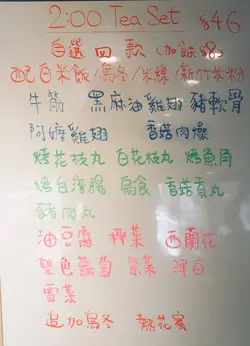 2:00 Tea Set $46
自選四款 (加餸$8)
配白米飯/烏冬/米線/新竹米粉
牛筋 黑麻油雞翅 豬軟骨
阿嬤雞翅 香菇肉燥
烤花枝丸 白花枝丸 烤魚角
烤台灣腸 扁食 香菇貢丸
豬肉丸
油豆腐 椰菜 西蘭花
雙色蘿蔔 紫菜 津白
雪菜
追加烏冬 熱花蜜